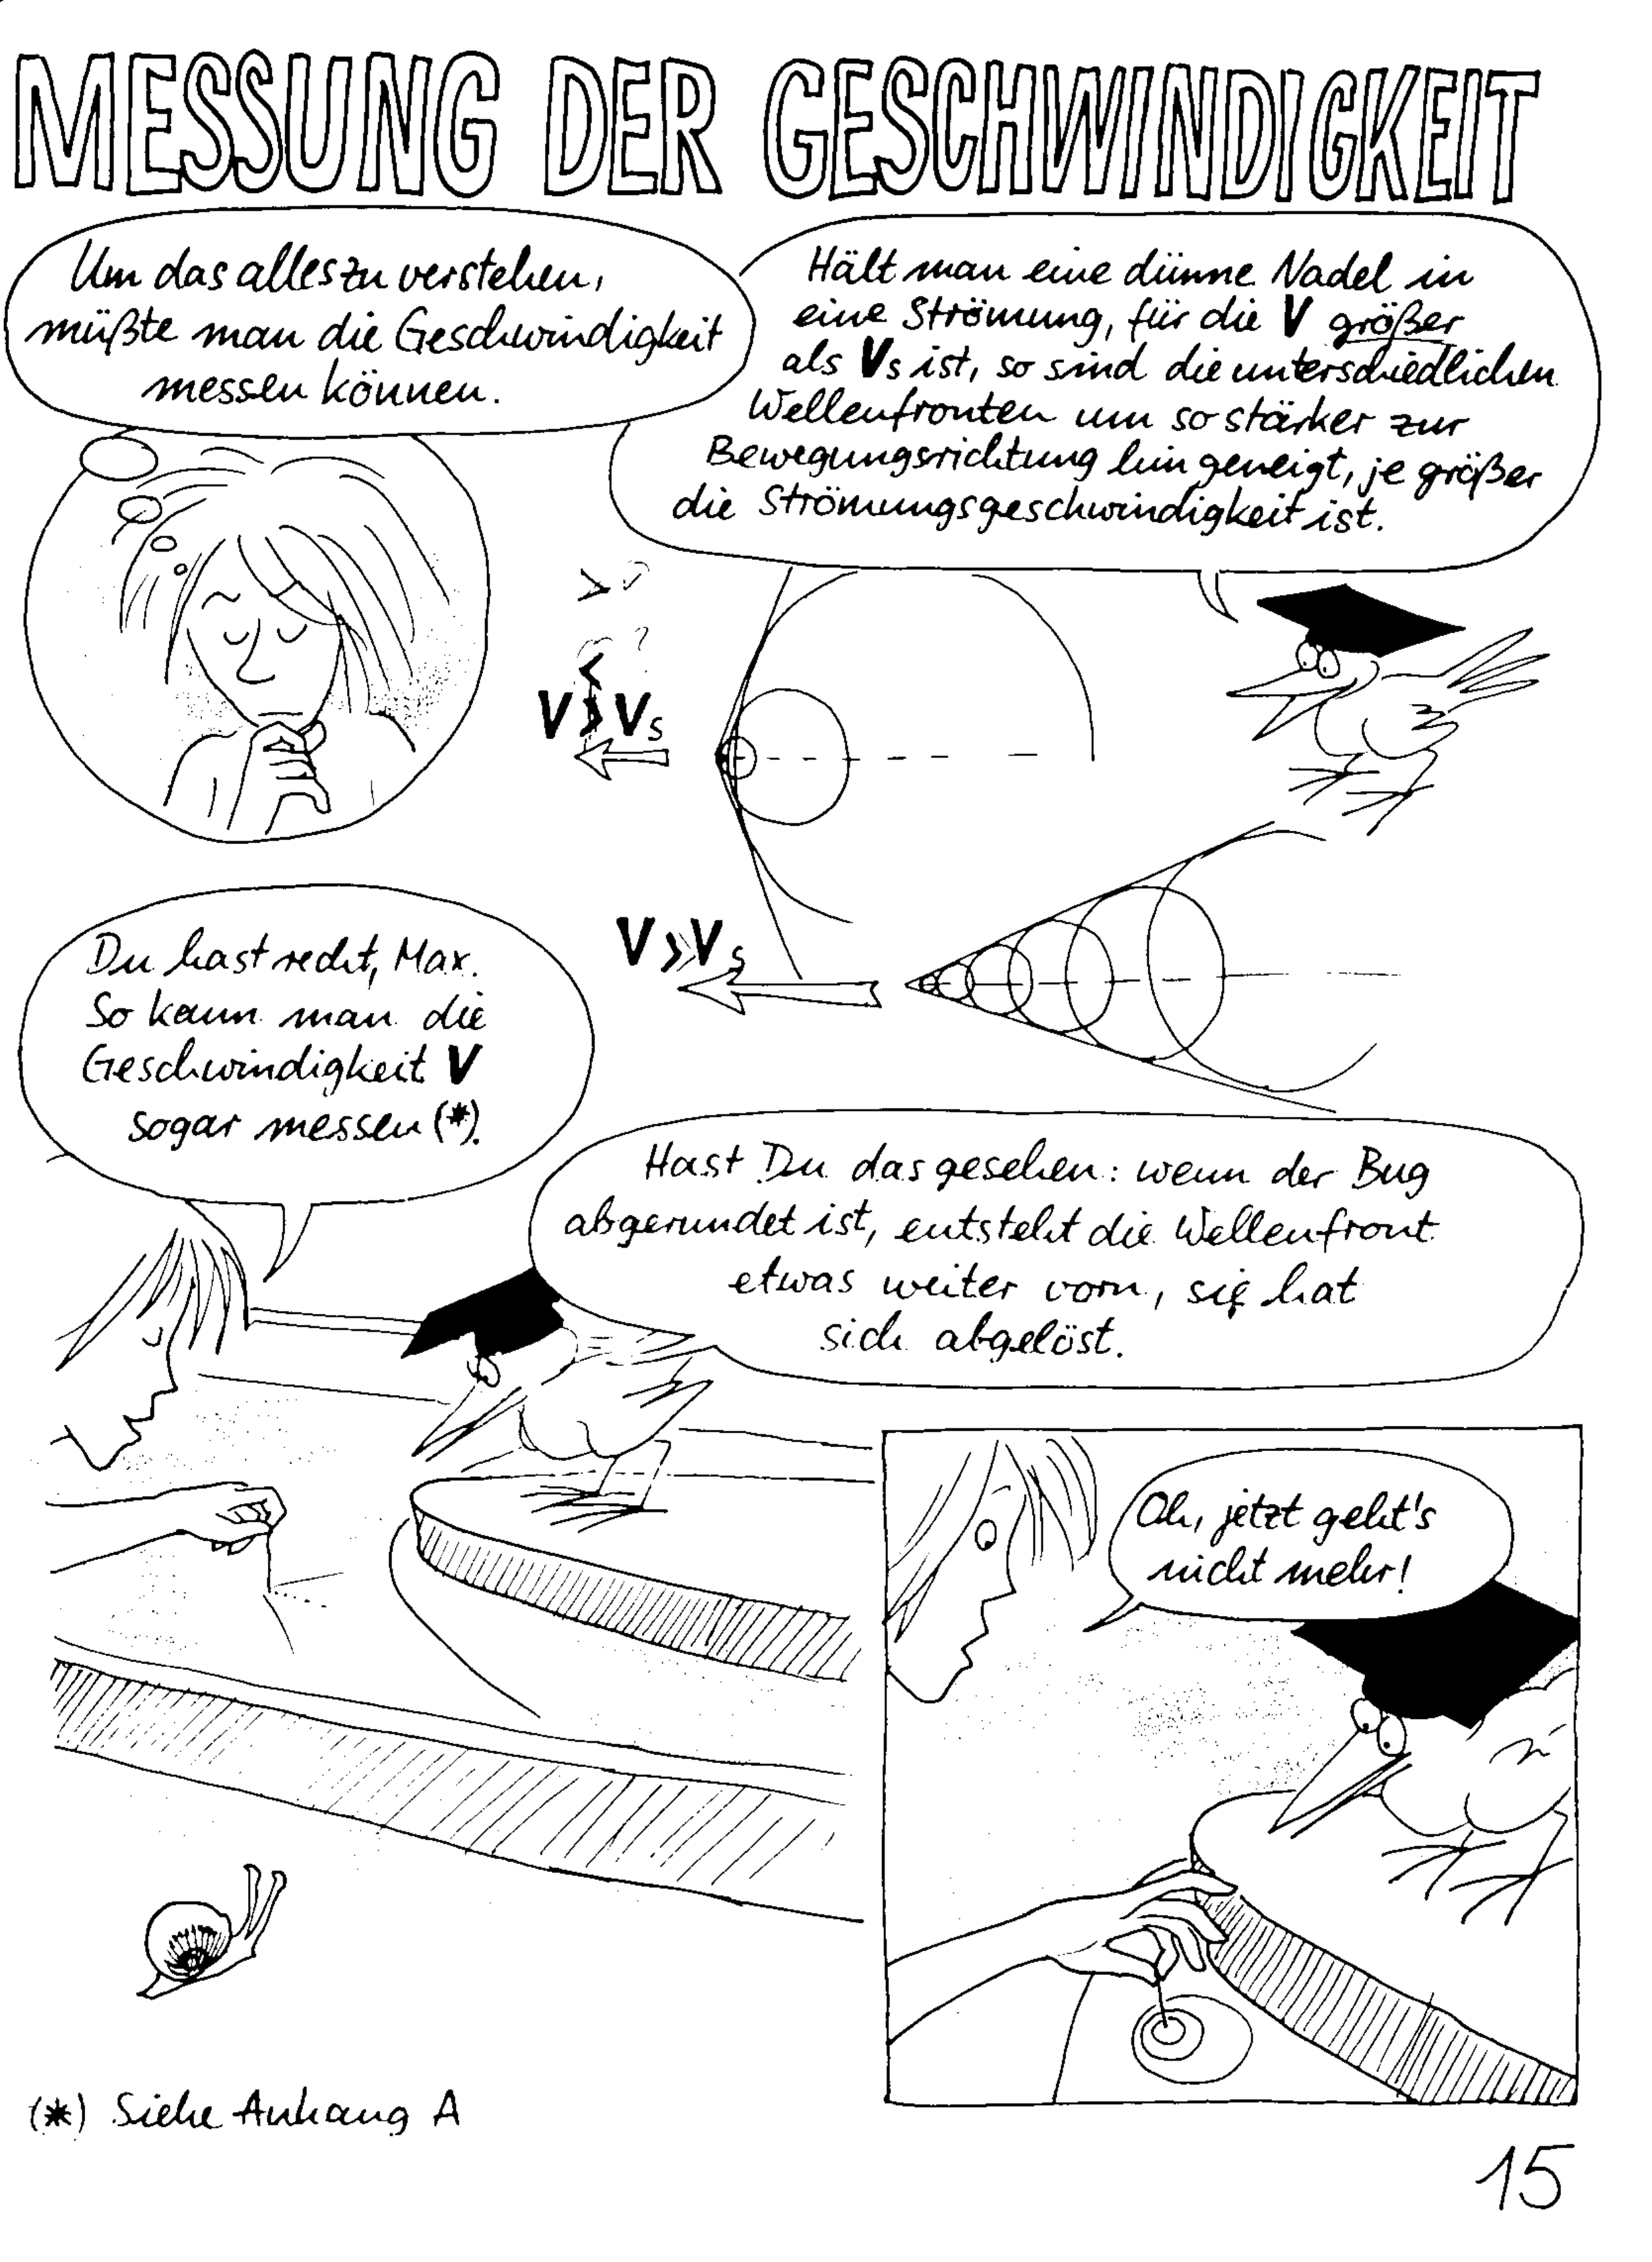 MESSUNG DER GESCHWINDIGKEIT
Um das alles zu verstehen,
müßte man die Geschwindigkeit
messen können.
Hält man eine dünne Nadel in
eine Strömung, für die V größer
als Vs ist, so sind die unterschiedlichen
Wellenfronten um so stärker zur
Bewegungsrichtung hin geneigt, je größer
die Strömungsgeschwindigkeit ist.
?
V Vs
V>Vs
Du hast recht, Max.
So kann man die
Geschwindigkeit V
sogar messen (*).
Hast Du das gesehen: wenn der Bug
abgerundet ist, entsteht die Wellenfront
etwas weiter vorn, sie hat
sich abgelöst.
Oh, jetzt geht's
nicht mehr!
(*) Siehe Anhang A
15